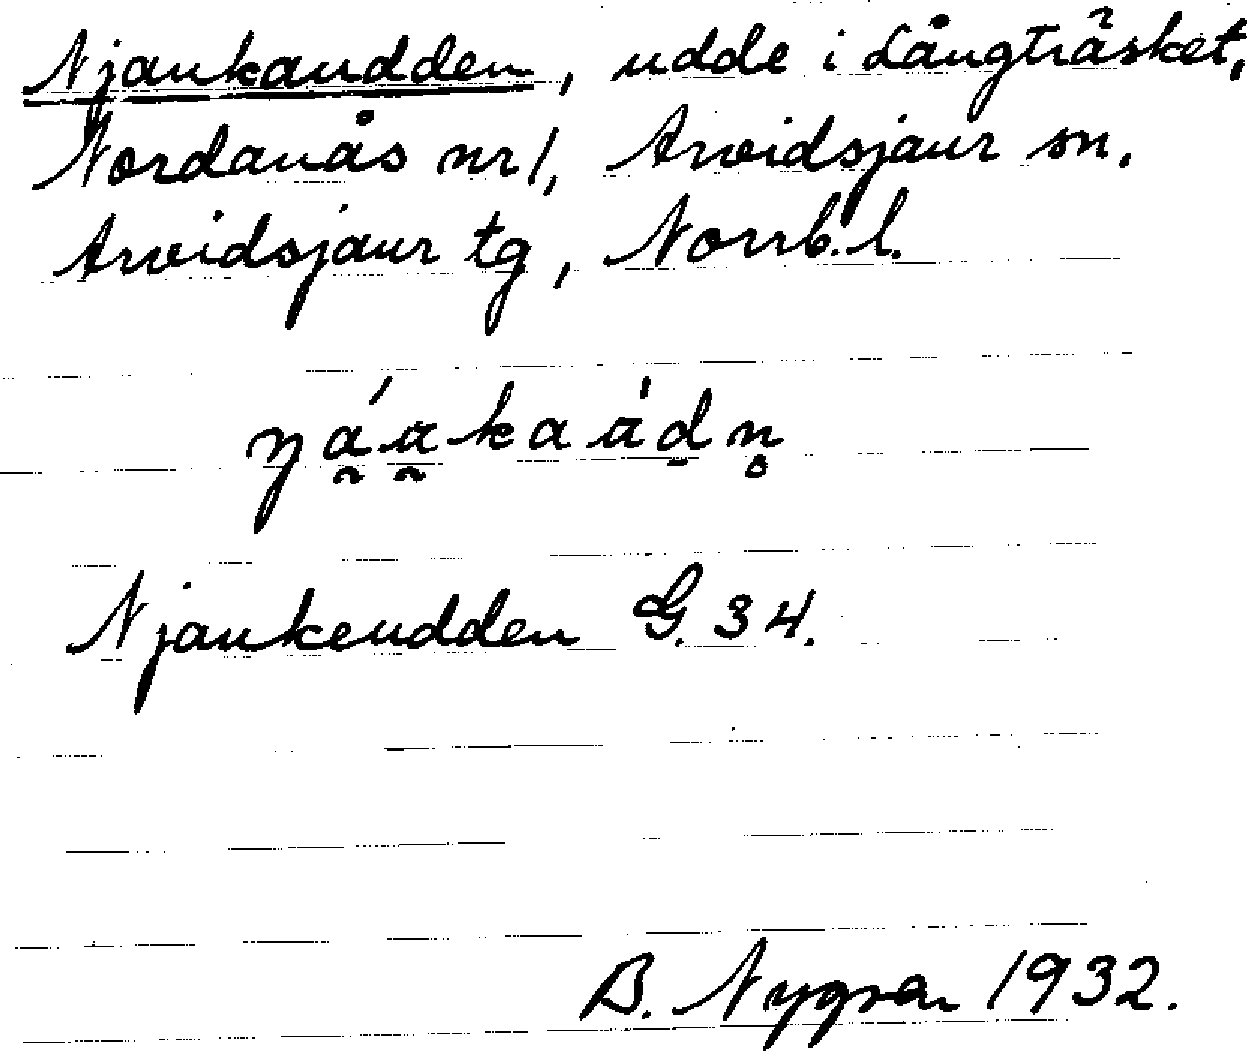 Njaukaudden, udde i Långträsket,
Nordanås nr 1, Arvidsjaur sn.
Arvidsjaur tg, Norrb. l.
Njaukeudden G. 34.
B. Nygren 1932.